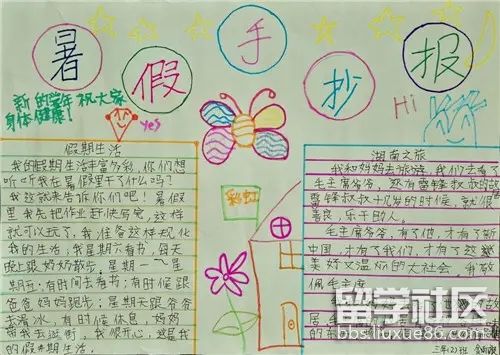 暑假手抄报
新的学年祝大家
身体健康！
yes
Hi
假期生活
我的假期生活丰富多彩，你们想
听听我在暑假里干了什么吗？
我这就来告诉你们吧！暑假
里我先把作业赶快写完，这样
就可以玩了，我准备这样规化
我的生活：我星期六看书，每天
晚上跟奶奶散步；星期一～星
期五，有时间去看书；有时候跟
爸爸妈妈跑步；星期天跟爷爷
去滑水，有时候休息，妈妈
带我去逛街，我很开心，这是我
的假期生活。
彩虹
湖南之旅
我和妈妈去旅游，我们去看了
毛主席爷爷，还有雷锋叔叔的
雷锋叔叔十几岁的时候，就很
善良，乐于助人。
毛主席爷爷，有了他，才有了新
中国，才有了我们，才有了这
美好又温暖的大社会，我
佩毛主席
三年(2)班
留学社区
bbs.liuxue86.com